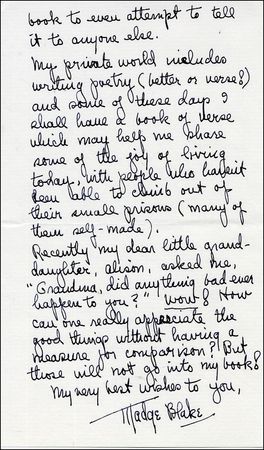 book to even attempt to tell
it to anyone else.
My private world includes
writing poetry (better or verse!)
and some of these days I
shall have a book of verse
which may help me share
some of the joy of living
today, with people who haven't
been able to climb out of
their small prisons (many of
them self-made).
Recently my dear little grand-
daughter, alison, asked me,
"Grandma, did anything bad ever
happen to you?" wow! How
can one really appreciate the
good things without having a
measure for comparison? But
those will not go into my book!
My very best wishes to you,
Madge Blake